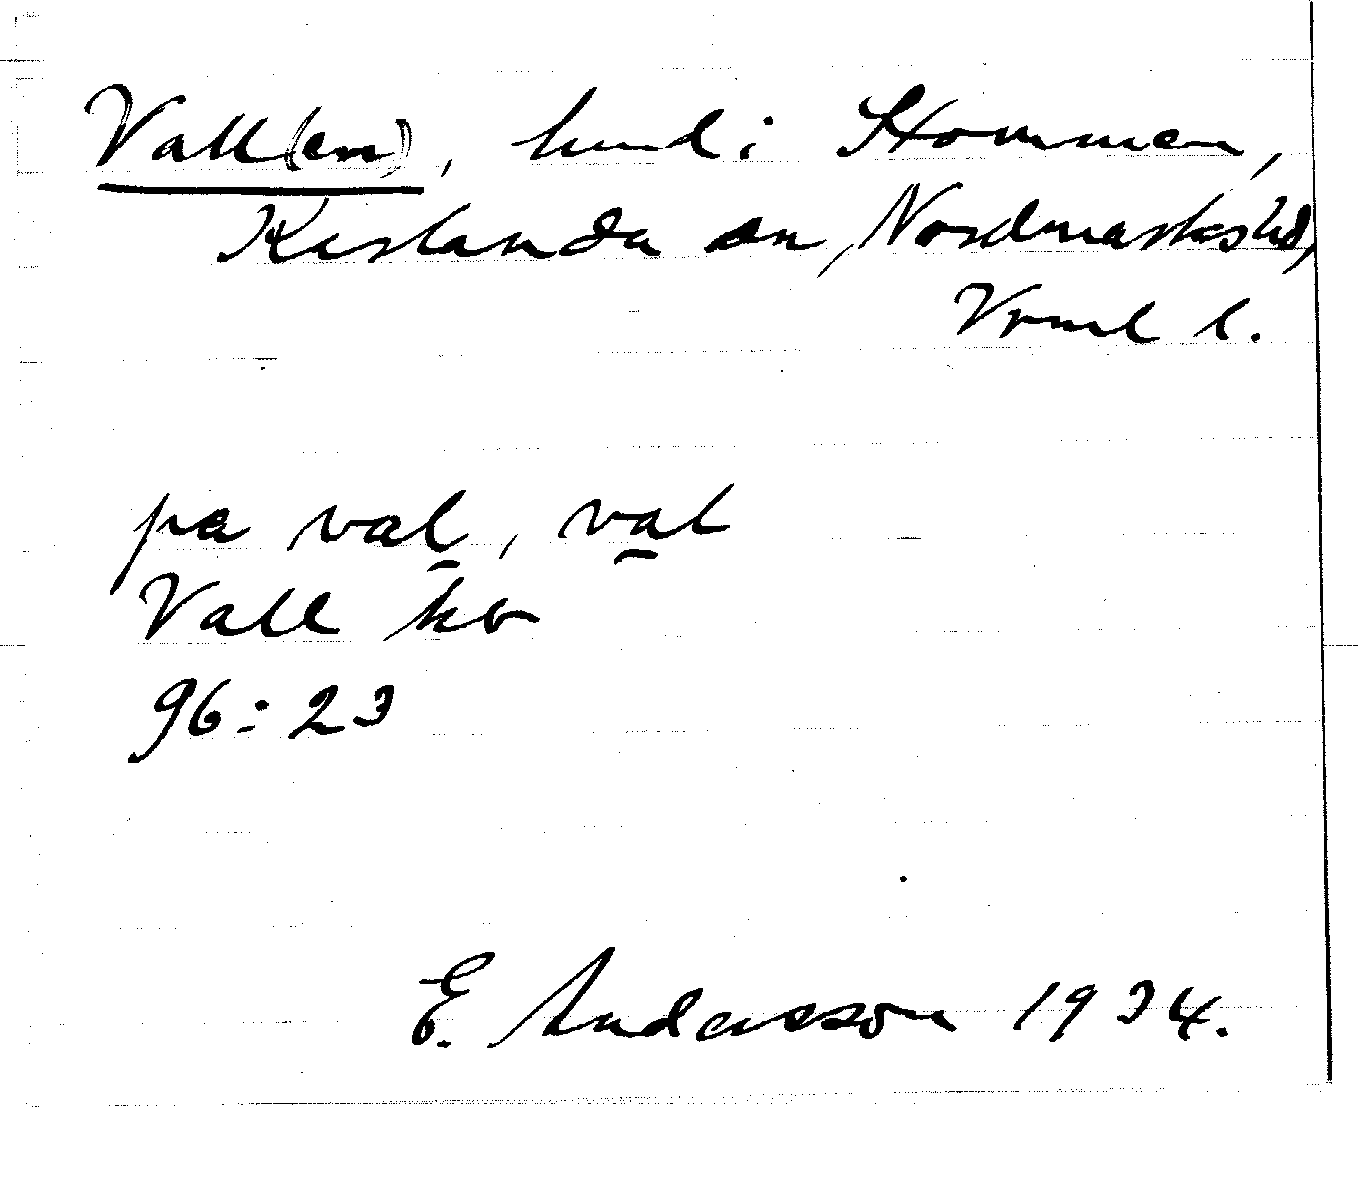 Vall(en), hmd i Stommen,
Karlanda sn, Nordmarks hd,
Vrml l.
på val, val
Vall kb
96:23
E. Andersson 1934.